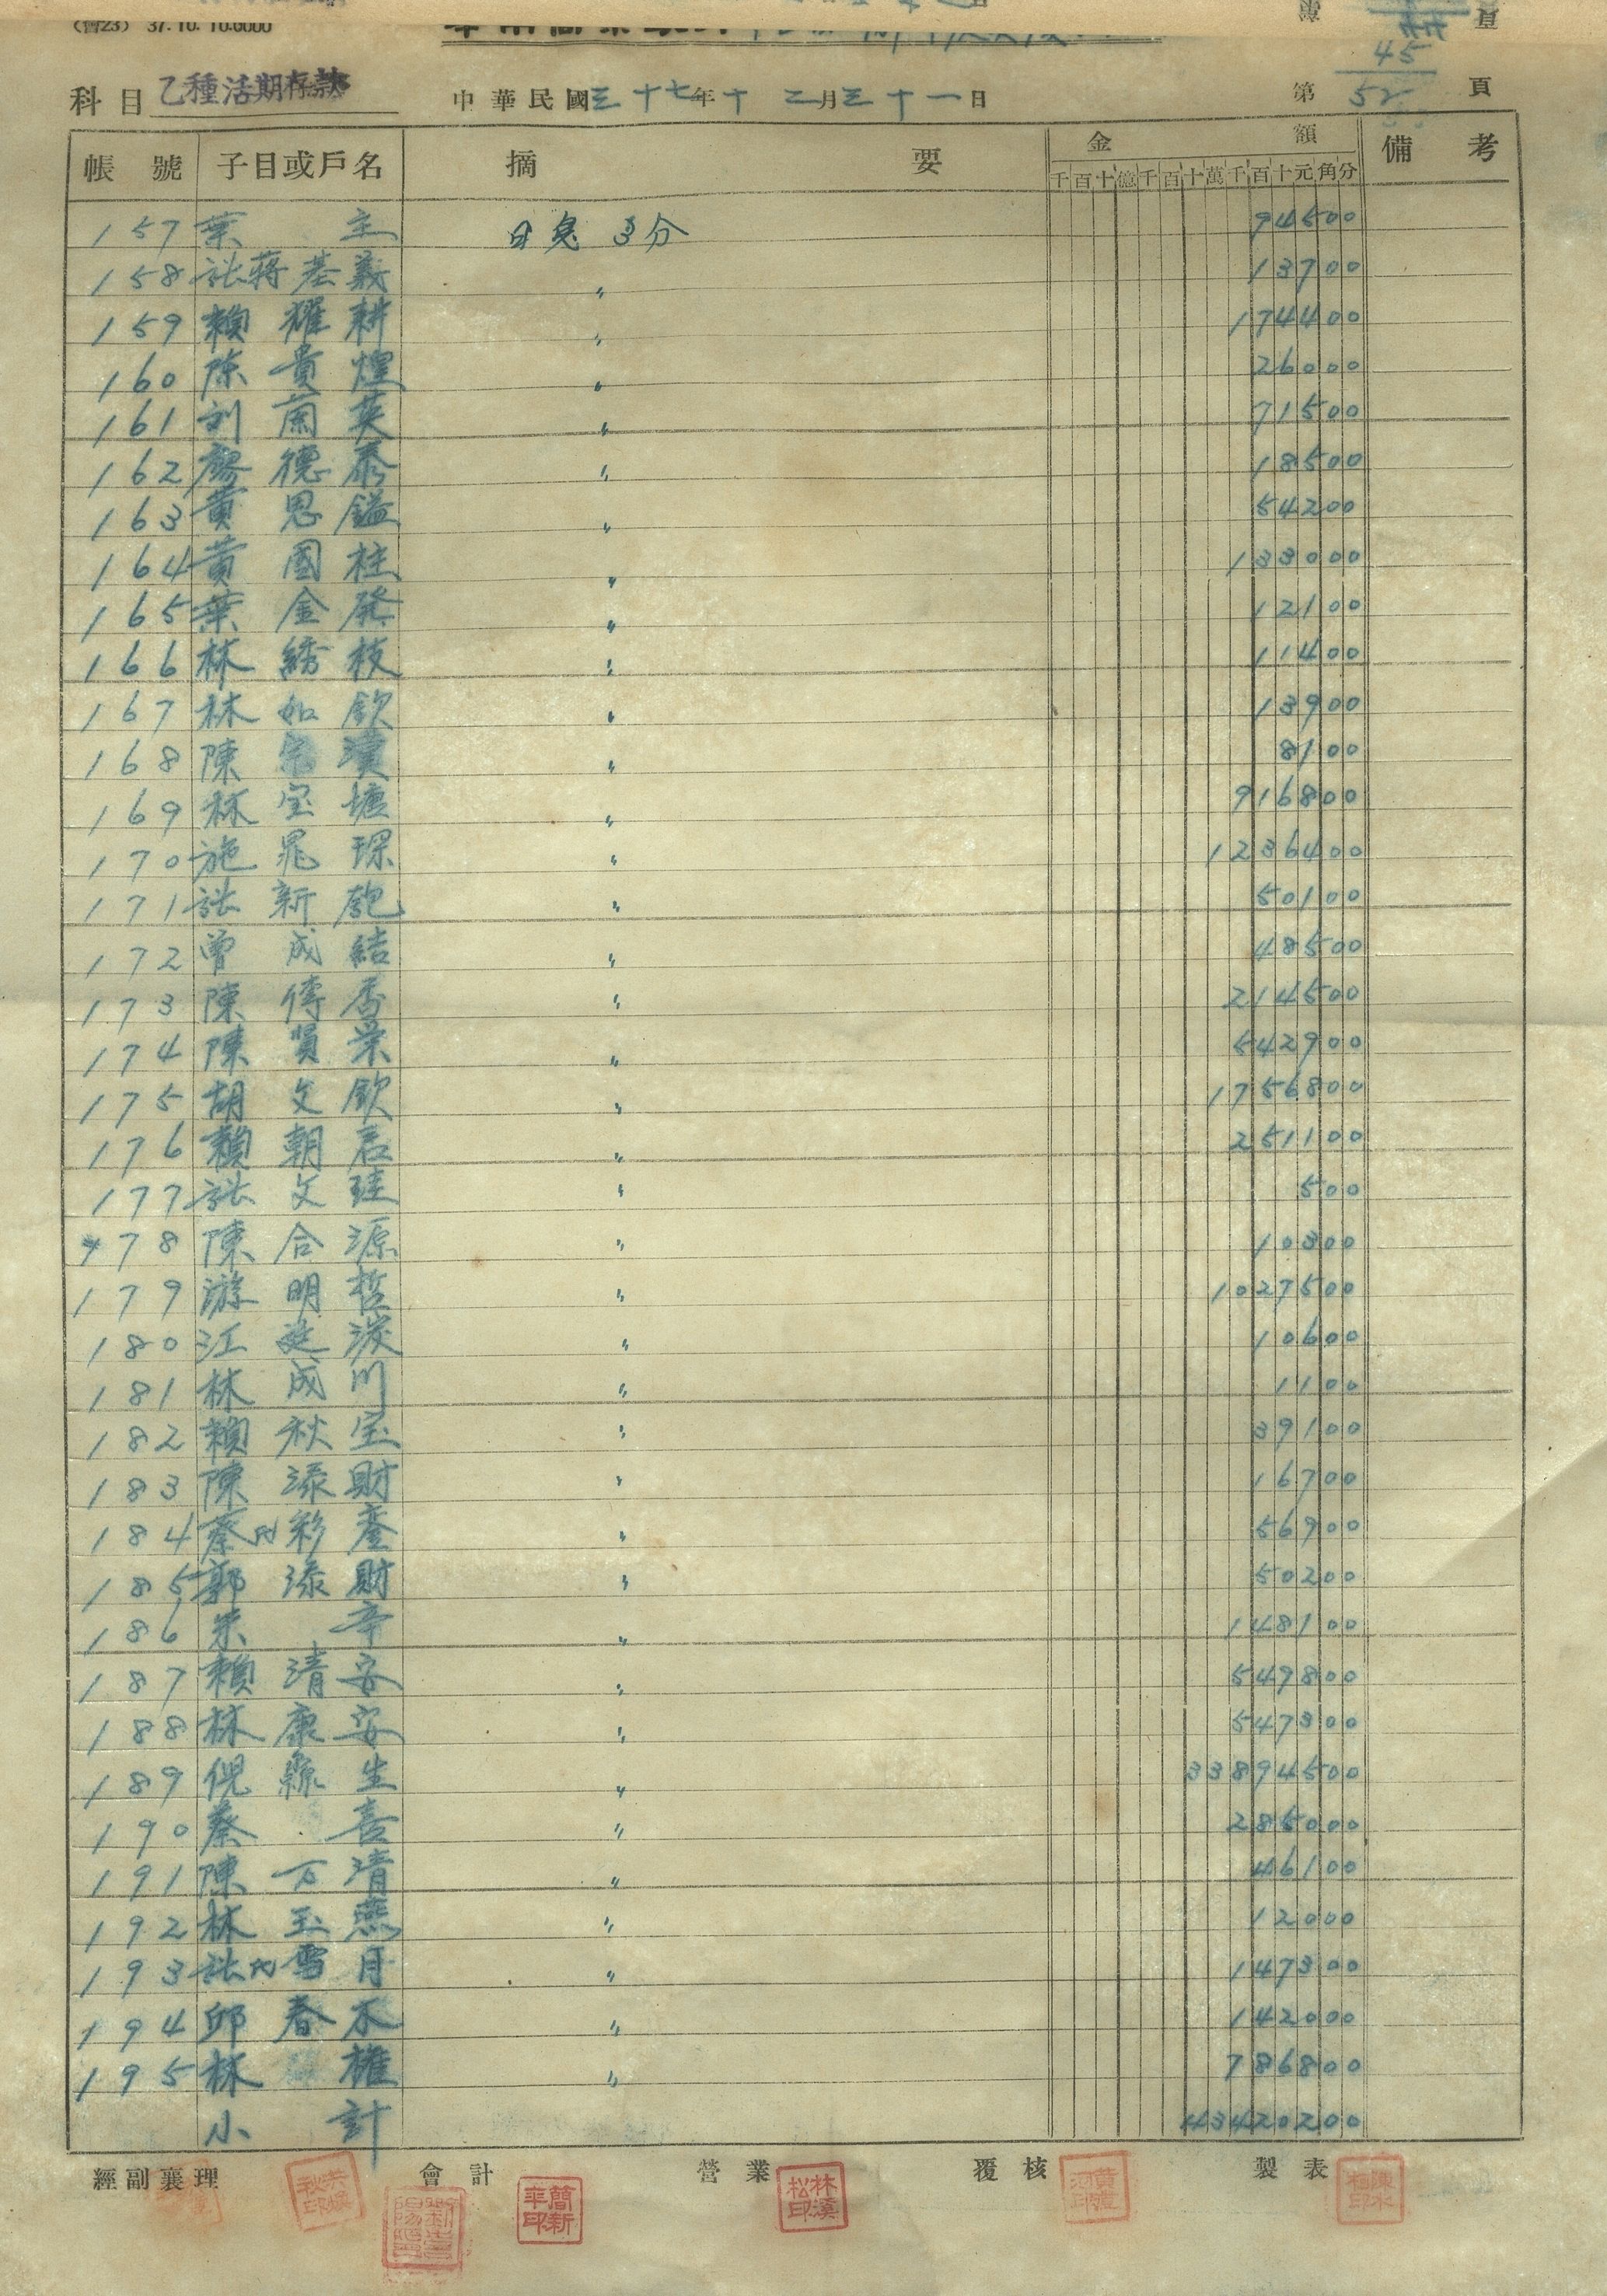 (會23) 37.10.10.0000
45
科目 乙種活期存款 中華民國三十七年十二月三十一日 第 52 頁
帳號 子目或戶名 摘要 金額 備考
千百十億千百十萬千百十元角分
157 葉主 日息 3分 94500
158 張蔣基義 〃 13700
159 賴耀耕 〃 174400
160 陳貴煌 〃 26000
161 刘蘭英 〃 71500
162 廖德泰 〃 18500
163 黃恩鎰 〃 54200
164 黃國柱 〃 133000
165 葉金發 〃 12100
166 林綉枝 〃 11400
167 林如欽 〃 13900
168 陳宗漢 〃 8100
169 林宝塘 〃 916800
170 施晁琛 〃 1236400
171 張新 〃 50100
172 曾成結 〃 48500
173 陳倚香 〃 214500
174 陳賢荣 〃 542900
175 胡文欽 〃 1756800
176 賴朝君 〃 251100
177 張文 〃 500
178 陳合源 〃 10300
179 游明哲 〃 1027500
180 江延 〃 10600
181 林成川 〃 1100
182 賴秋宝 〃 39100
183 陳添財 〃 16700
184 蔡彩 〃 56900
185 郭添財 〃 50200
186 朱辛 〃 148100
187 賴清安 〃 549800
188 林康安 〃 547300
189 倪縣生 〃 33894500
190 蔡喜 〃 285000
191 陳万清 〃 46100
192 林玉燕 〃 12000
193 張氏雪月 〃 147300
194 邱春木 〃 142000
195 林權 〃 786800
小計 43420200
經副襄理 會計 營業 覆核 製表
簡新平印 林溪松印